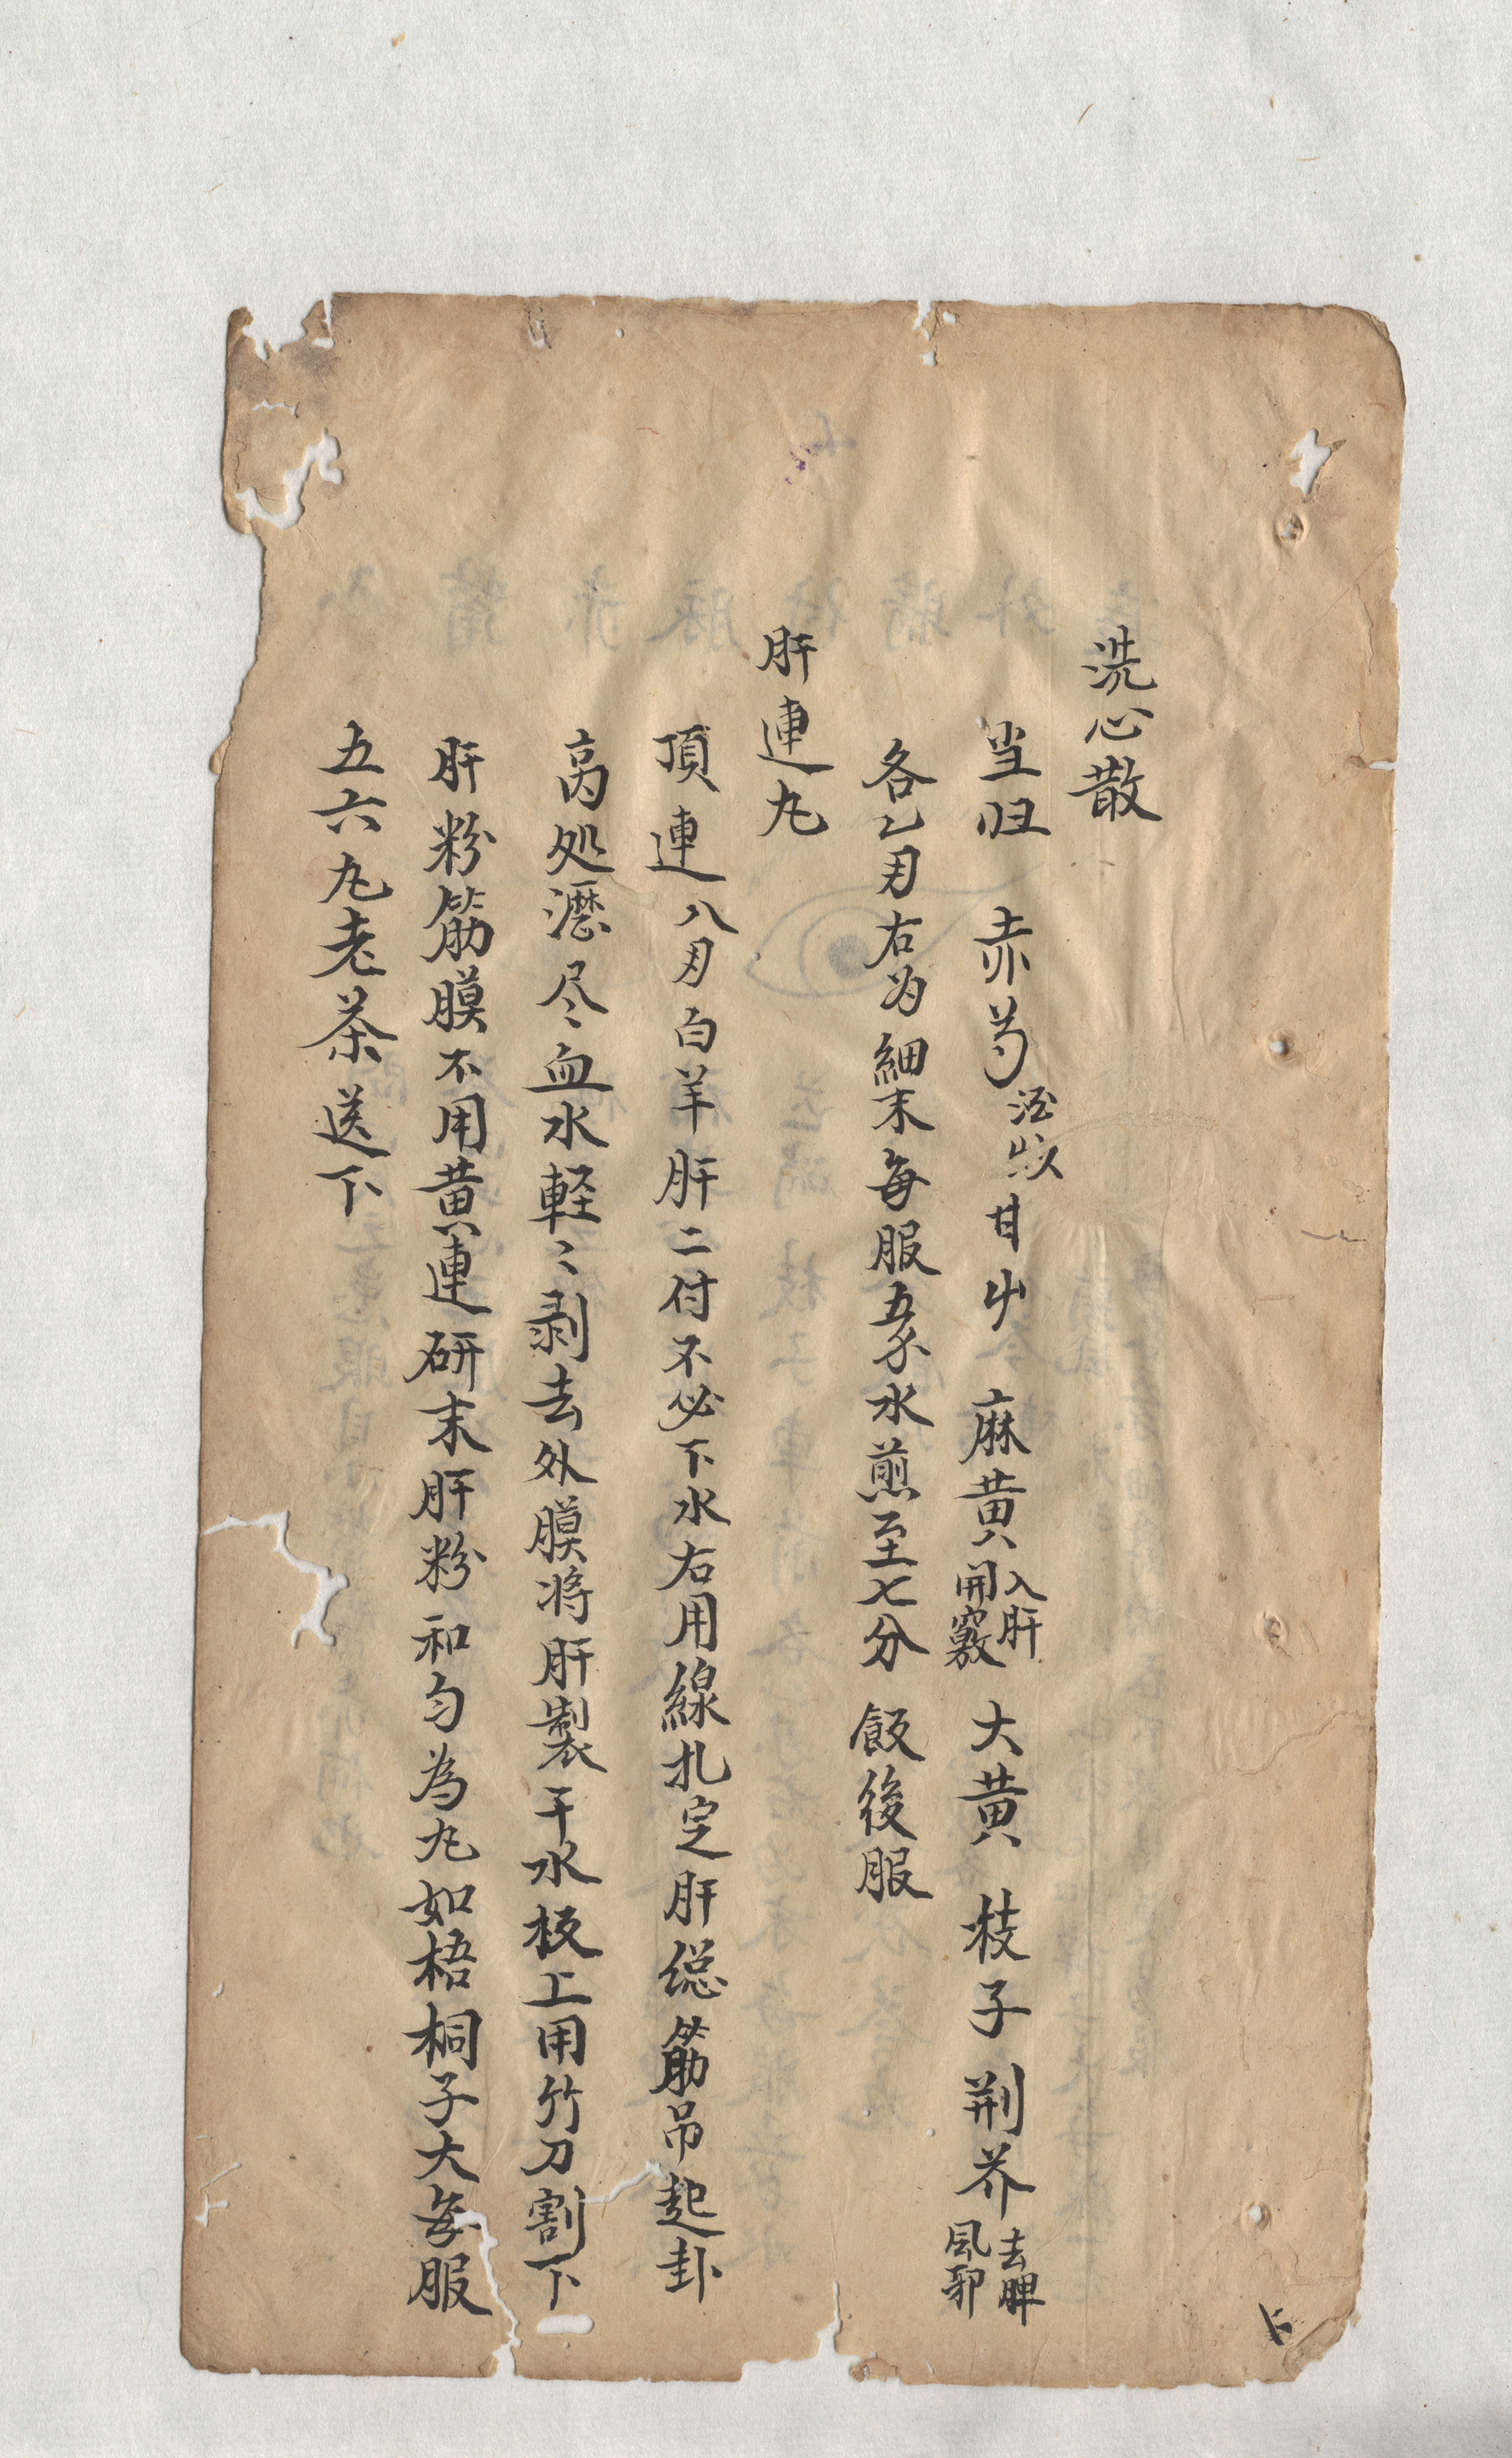 洗心散
当归 赤芍 酒炒 甘屮 麻黄 入肝開竅 大黄 枝子 荆芥 去脾風邪
各乙刄右为細末每服五 水煎至七分 飯後服
肝連丸
頂連八刄白羊肝二付不必下水右用線扎定肝總筋吊起卦
高处瀝尽血水軽〻剥去外膜将肝製干水板上用竹刀割下
肝粉筋膜不用黄連研末肝粉和匀為丸如梧桐子大每服
五六丸老茶送下